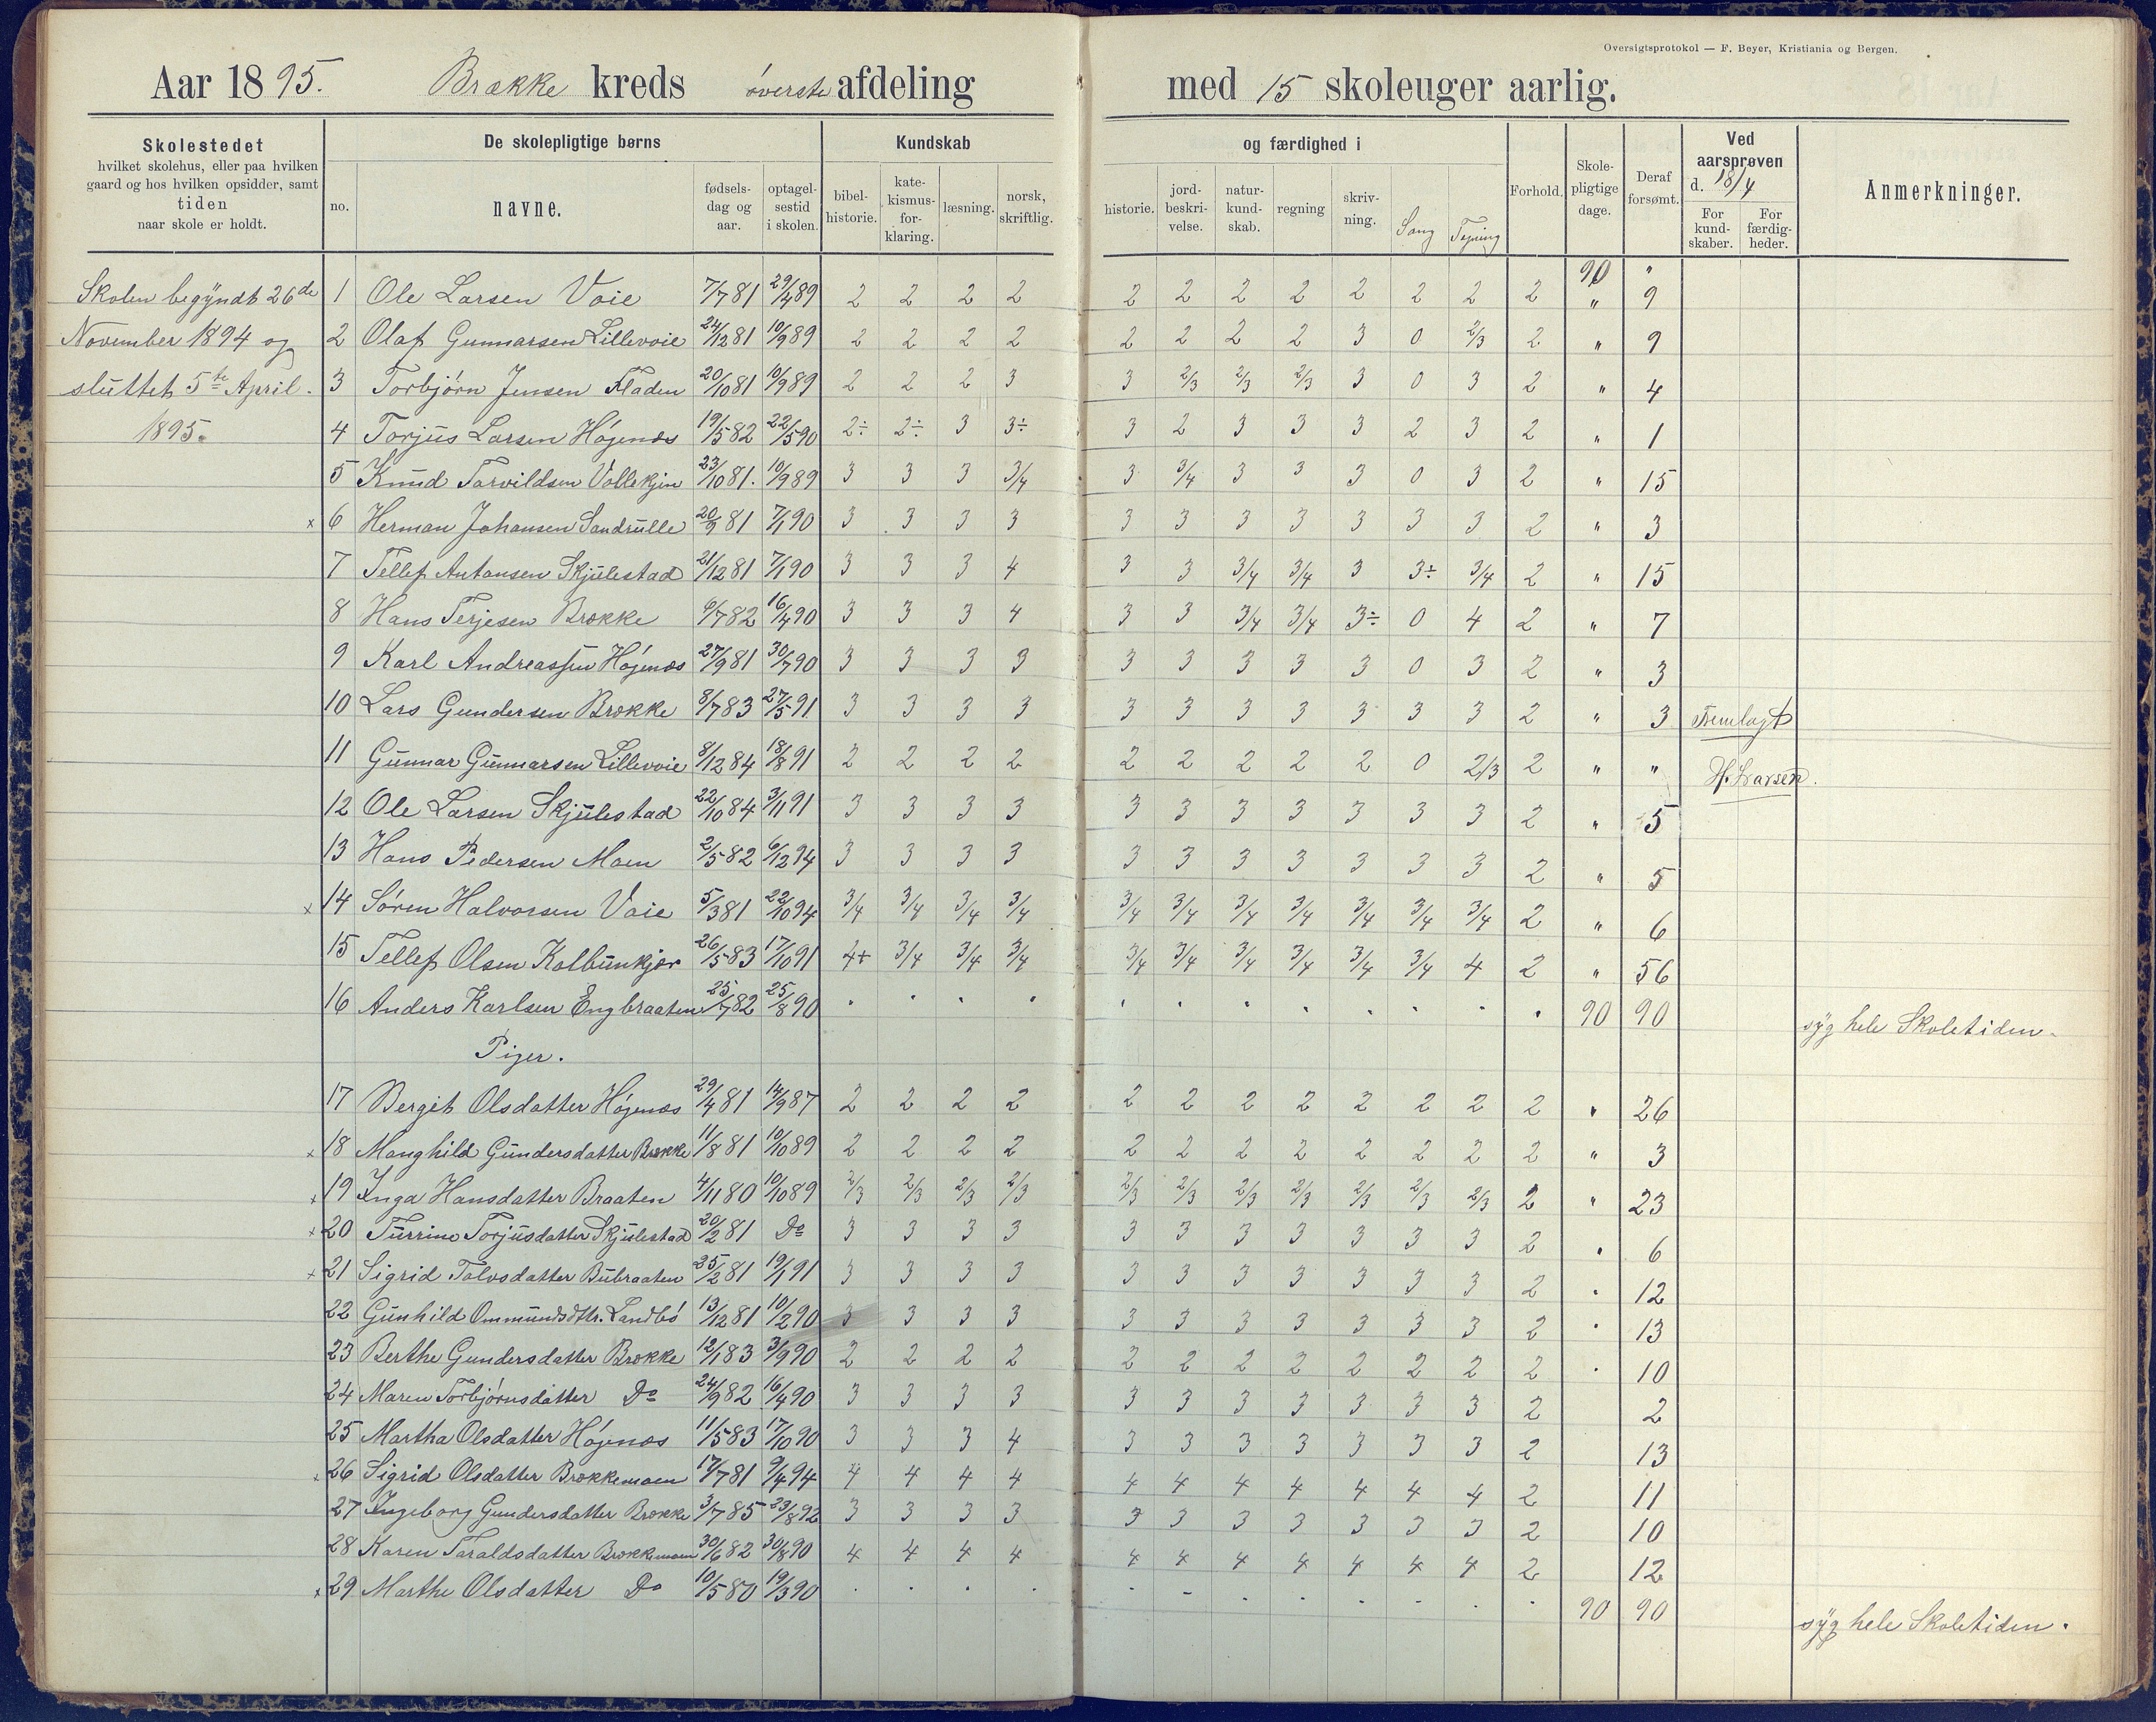 Oversigtsprotokol — F. Beyer, Kristiania og Bergen.
Aar 1895. Brække kreds øverste afdeling med 15 skoleuger aarlig.
Skolestedet hvilket skolehus, eller paa hvilken gaard og hos hvilken opsidder, samt tiden naar skole er holdt.
De skolepligtige børns
no. navne. fødselsdag og aar. optagelsestid i skolen.
Kundskab og færdighed i
bibelhistorie. katekismusforklaring. læsning. norsk, skriftlig. historie. jordbeskrivelse. naturkundskab. regning skrivning. Sang Tegning
Forhold. Skolepligtige dage. Deraf forsømt. Ved aarsprøven d. 18/4 For kundskaber. For færdigheder. Anmerkninger.
Skolen begyndt 26de
November 1894 og
sluttet 5te April.
1895.
90 "
1 Ole Larsen Voie 7/7 81 29/4 89 2 2 2 2 2 2 2 2 2 2 2 2 " 9
2 Olaf Gunnarsen Lillevoie 24/12 81 10/9 89 2 2 2 2 2 2 2 2 3 0 2/3 2 " 9
3 Torbjørn Jensen Fladen 20/10 81 10/9 89 2 2 2 3 3 2/3 2/3 2/3 3 0 3 2 " 4
4 Torjus Larsen Høgenæs 19/5 82 22/5 90 2÷ 2÷ 3 3÷ 3 2 3 3 3 2 3 2 " 1
5 Knud Tarvildsen Vollekjin 23/10 81. 10/9 89 3 3 3 3/4 3 3/4 3 3 3 0 3 2 " 15
x 6 Herman Johansen Sandrulle 20/9 81 7/1 90 3 3 3 3 3 3 3 3 3 3 3 2 " 3
7 Tellef Antonsen Skjulestad 21/12 81 7/1 90 3 3 3 4 3 3 3/4 3/4 3 3÷ 3/4 2 " 15
8 Hans Terjesen Brække 6/7 82 16/4 90 3 3 3 4 3 3 3/4 3/4 3÷ 0 4 2 " 7
9 Karl Andreassen Høgenæs 27/9 81 30/7 90 3 3 3 3 3 3 3 3 3 0 3 2 " 3
10 Lars Gundersen Brække 8/7 83 27/5 91 3 3 3 3 3 3 3 3 3 3 3 2 " 3 Fremlagt
11 Gunnar Gunnarsen Lillevoie 8/12 84 18/8 91 2 2 2 2 2 2 2 2 2 0 2/3 2 " " H. Larsen.
12 Ole Larsen Skjulestad 22/10 84 3/11 91 3 3 3 3 3 3 3 3 3 3 3 2 " 5
13 Hans Pedersen Moen 2/5 82 6/12 94 3 3 3 3 3 3 3 3 3 3 3 2 " 5
x 14 Søren Halvorsen Voie 5/3 81 22/10 94 3/4 3/4 3/4 3/4 3/4 3/4 3/4 3/4 3/4 3/4 3/4 2 " 6
15 Tellef Olsen Kolbunkjær 26/5 83 17/10 91 4+ 3/4 3/4 3/4 3/4 3/4 3/4 3/4 3/4 3/4 4 2 " 56
16 Anders Karlsen Engbraaten 25/7 82 25/8 90 90 90 syg hele Skoletiden.
Piger.
17 Bergit Olsdatter Høgenæs 29/4 81 14/9 87 2 2 2 2 2 2 2 2 2 2 2 2 " 26
x 18 Manghild Gundersdatter Brække 11/8 81 10/10 89 2 2 2 2 2 2 2 2 2 2 2 2 " 3
x 19 Inga Hansdatter Braaten 4/11 80 10/10 89 2/3 2/3 2/3 2/3 2/3 2/3 2/3 2/3 2/3 2/3 2/3 2 " 23
x 20 Turrine Torjusdatter Skjulestad 20/2 81 Do 3 3 3 3 3 3 3 3 3 3 3 2 " 6
x 21 Sigrid Tolvsdatter Bubraaten 25/2 81 19/1 91 3 3 3 3 3 3 3 3 3 3 3 2 " 12
22 Gunhild Ommundsdttr. Landbø 13/12 81 10/2 90 3 3 3 3 3 3 3 3 3 3 3 2 " 13
23 Berthe Gundersdatter Brække 12/1 83 3/9 90 2 2 2 2 2 2 2 2 2 2 2 2 " 10
24 Maren Torbjørnsdatter Do 24/9 82 16/4 90 3 3 3 3 3 3 3 3 3 3 3 2 2
25 Martha Olsdatter Høgenæs 11/5 83 17/10 90 3 3 3 4 3 3 3 3 3 3 3 2 13
x 26 Sigrid Olsdatter Brækkemoen 17/7 81 9/4 94 4 4 4 4 4 4 4 4 4 4 4 2 11
27 Ingeborg Gundersdatter Brække 3/7 85 23/8 92 3 3 3 3 3 3 3 3 3 3 3 2 10
28 Karen Taraldsdatter Brækkemoen 30/6 82 30/8 90 4 4 4 4 4 4 4 4 4 4 4 2 12
x 29 Marthe Olsdatter Do 10/5 80 19/3 90 90 90 syg hele Skoletiden.